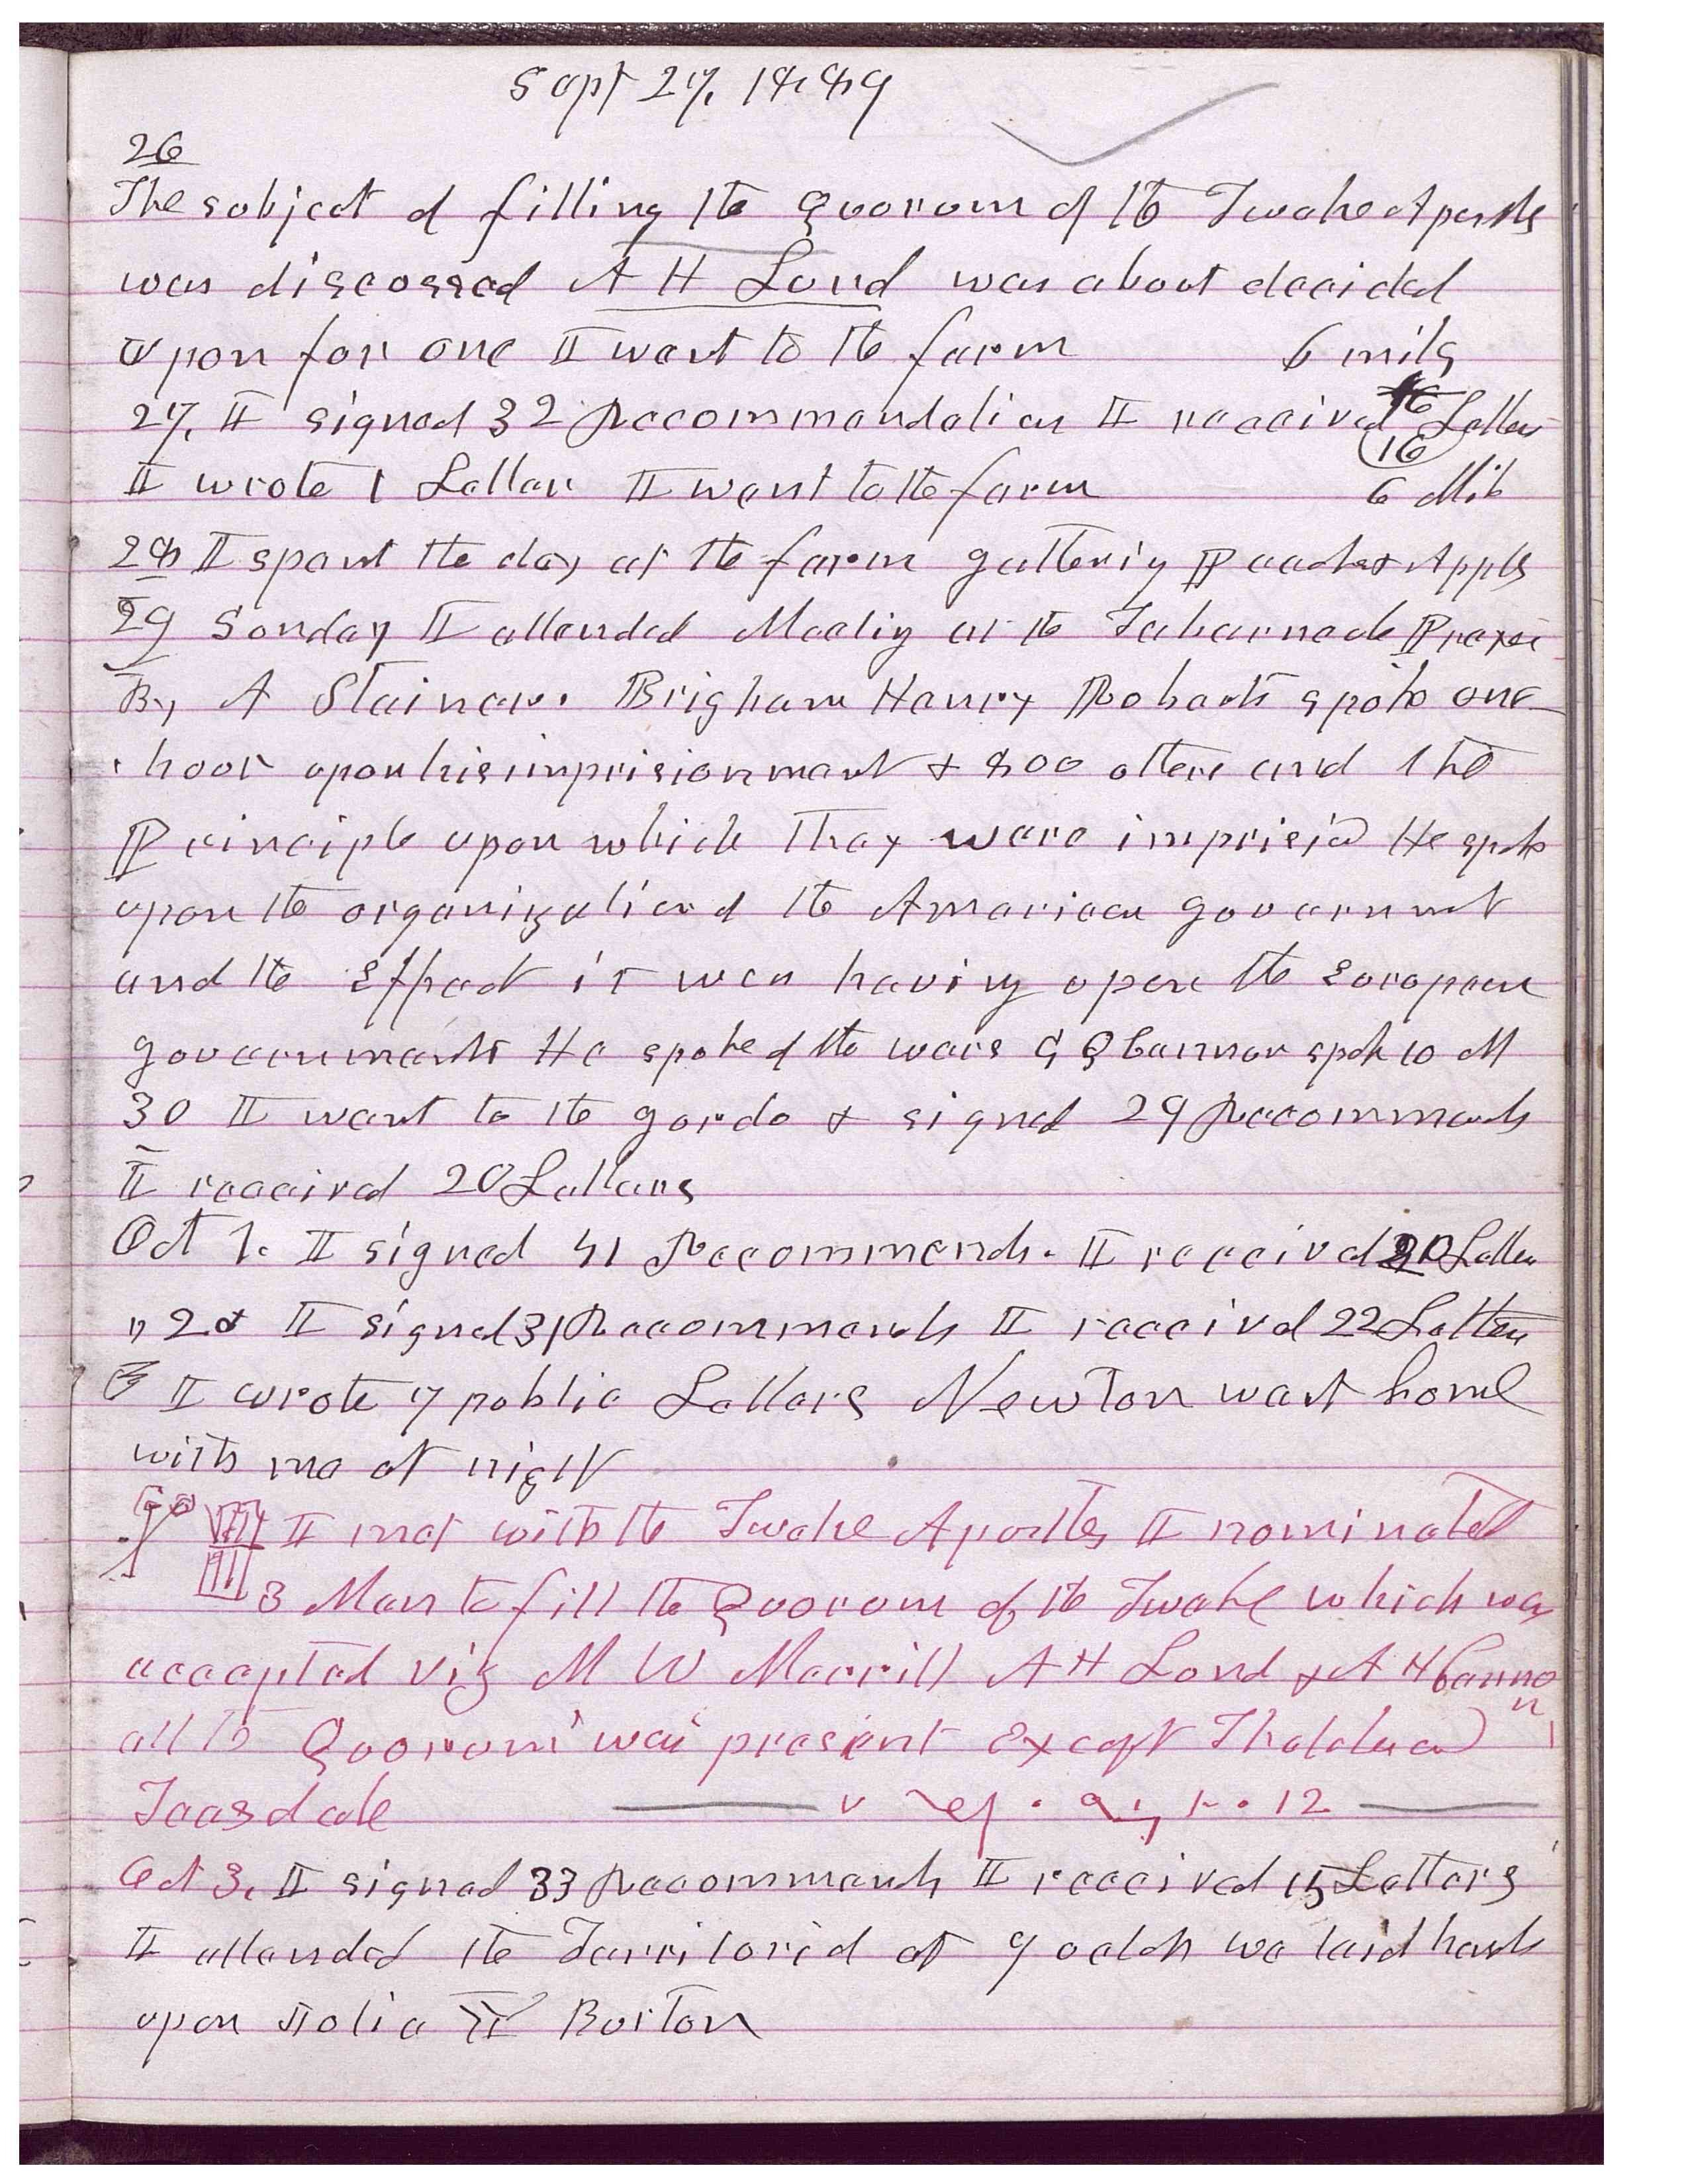 Sept 27, 1889
26
The subject of filling the Quorum of the Twelve Apostles
was discussed A H Lund was about decided
upon for one I went to the farm 6 miles
27, I signed 32 Recommendation I received 16 Letters
16
I wrote 1 Letter I went to the farm 6 Mile
28 I spent the day at the farm gathering Peaches & Apples
29 Sunday I attended Meeting at the Tabernacle Prayer
By A Stainer. Brigham Henry Roberts spoke one
hour upon his imprisionment & 800 others and the
Principle upon which they were imprisid He spoke
upon the organization of the American government
and the Effect it was having upon the European
governments He spoke of the wars G Q Cannon spok 10 M
30 I went to the gardo & signed 29 Recommends
I received 20 Letters
Oct 1. I signed 41 Recommends. I received 20 Letters
" 2d I signed 31 Recommends I received 22 Letters
I wrote 7 public Letters Newton went home
with me at night
I met with the Twelve Apostles I nominated
3 Men to fill the Quorum of the Twelve which was
accepted viz M W Merrill A H Lund & A H Cannon
all the Quorum was present except Thaddeus
Teasdale 12
Oct 3. I signed 33 Recommends I received 15 Letters
I attended the Territorid at 7 oclok we laid hands
upon Julia Burton